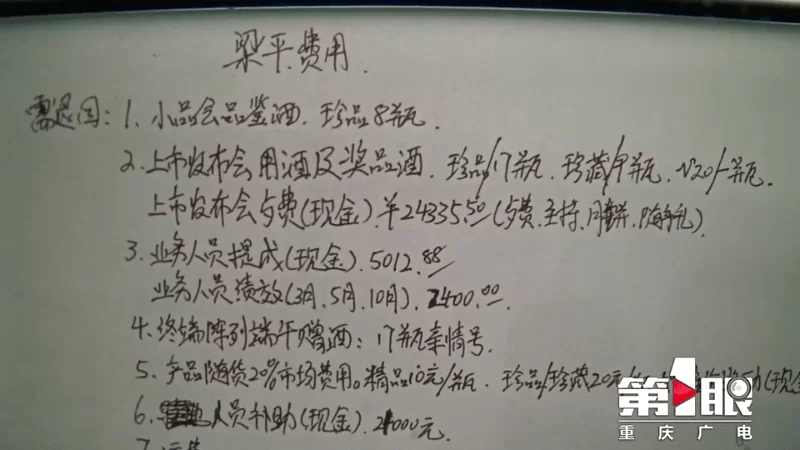 梁平费用.
需退回: 1. 小品会品鉴酒. 珍品8瓶.
2. 上市发布会用酒及奖品酒. 珍品17瓶. 珍藏19瓶.
上市发布会歺费(现金).￥24335.50 (歺费.主持.月餅.
3. 业务人员提成(现金). 5012.88
业务人员绩效(3月.5月.10月). 2400.00.
4. 终端陈列端午赠酒: 17瓶
5. 产品随货20%市场费用。精品10元/瓶. 珍品/珍藏20元/
6. 人员补助(现金). 21000元.
7.
第1眼
重庆广电